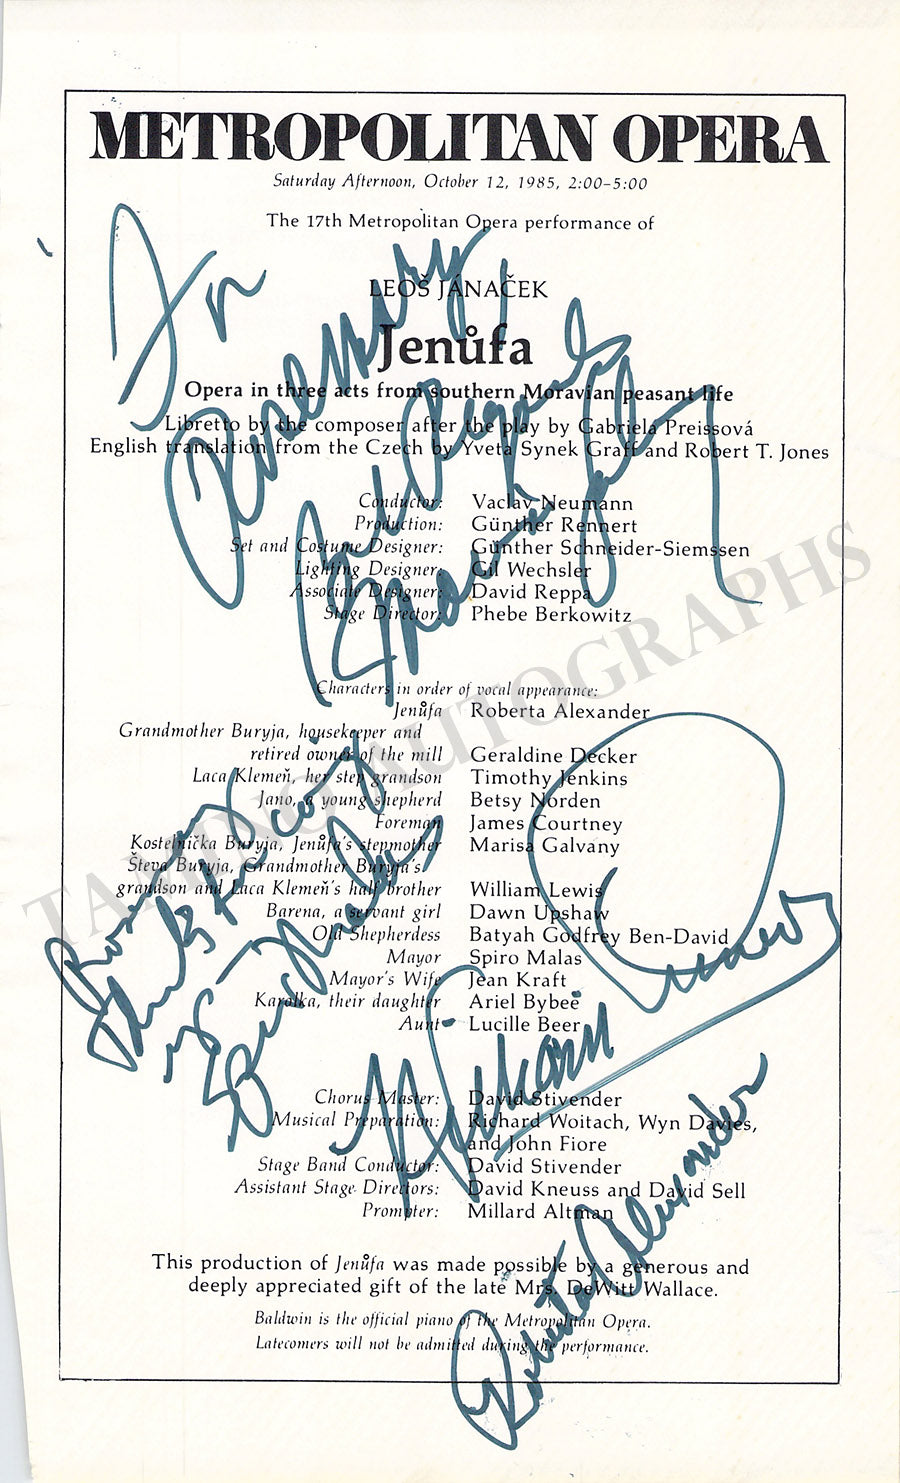 METROPOLITAN OPERA
Saturday Afternoon, October 12, 1985, 2:00–5:00
The 17th Metropolitan Opera performance of
LEOŠ JÁNAČEK
Jenůfa
Opera in three acts from southern Moravian peasant life
Libretto by the composer after the play by Gabriela Preissová
English translation from the Czech by Yveta Synek Graff and Robert T. Jones
For
Rosemary
Best Regards
Marisa Galvany
Conductor: Vaclav Neumann
Production: Günther Rennert
Set and Costume Designer: Günther Schneider-Siemssen
Lighting Designer: Gil Wechsler
Associate Designer: David Reppa
Stage Director: Phebe Berkowitz
TAMINO AUTOGRAPHS
Characters in order of vocal appearance:
Jenůfa Roberta Alexander
Grandmother Buryja, housekeeper and
retired owner of the mill Geraldine Decker
Laca Klemeň, her step grandson Timothy Jenkins
Jano, a young shepherd Betsy Norden
Foreman James Courtney
Kostelnička Buryja, Jenůfa's stepmother Marisa Galvany
Števa Buryja, Grandmother Buryja's
grandson and Laca Klemeň's half brother William Lewis
Barena, a servant girl Dawn Upshaw
Old Shepherdess Batyah Godfrey Ben-David
Mayor Spiro Malas
Mayor's Wife Jean Kraft
Karolka, their daughter Ariel Bybee
Aunt Lucille Beer
Rosemary
Thanks for
Spiro Malas
William Lewis
Chorus Master: David Stivender
Musical Preparation: Richard Woitach, Wyn Davies,
and John Fiore
Stage Band Conductor: David Stivender
Assistant Stage Directors: David Kneuss and David Sell
Prompter: Millard Altman
Roberta Alexander
This production of Jenůfa was made possible by a generous and
deeply appreciated gift of the late Mrs. DeWitt Wallace.
Baldwin is the official piano of the Metropolitan Opera.
Latecomers will not be admitted during the performance.